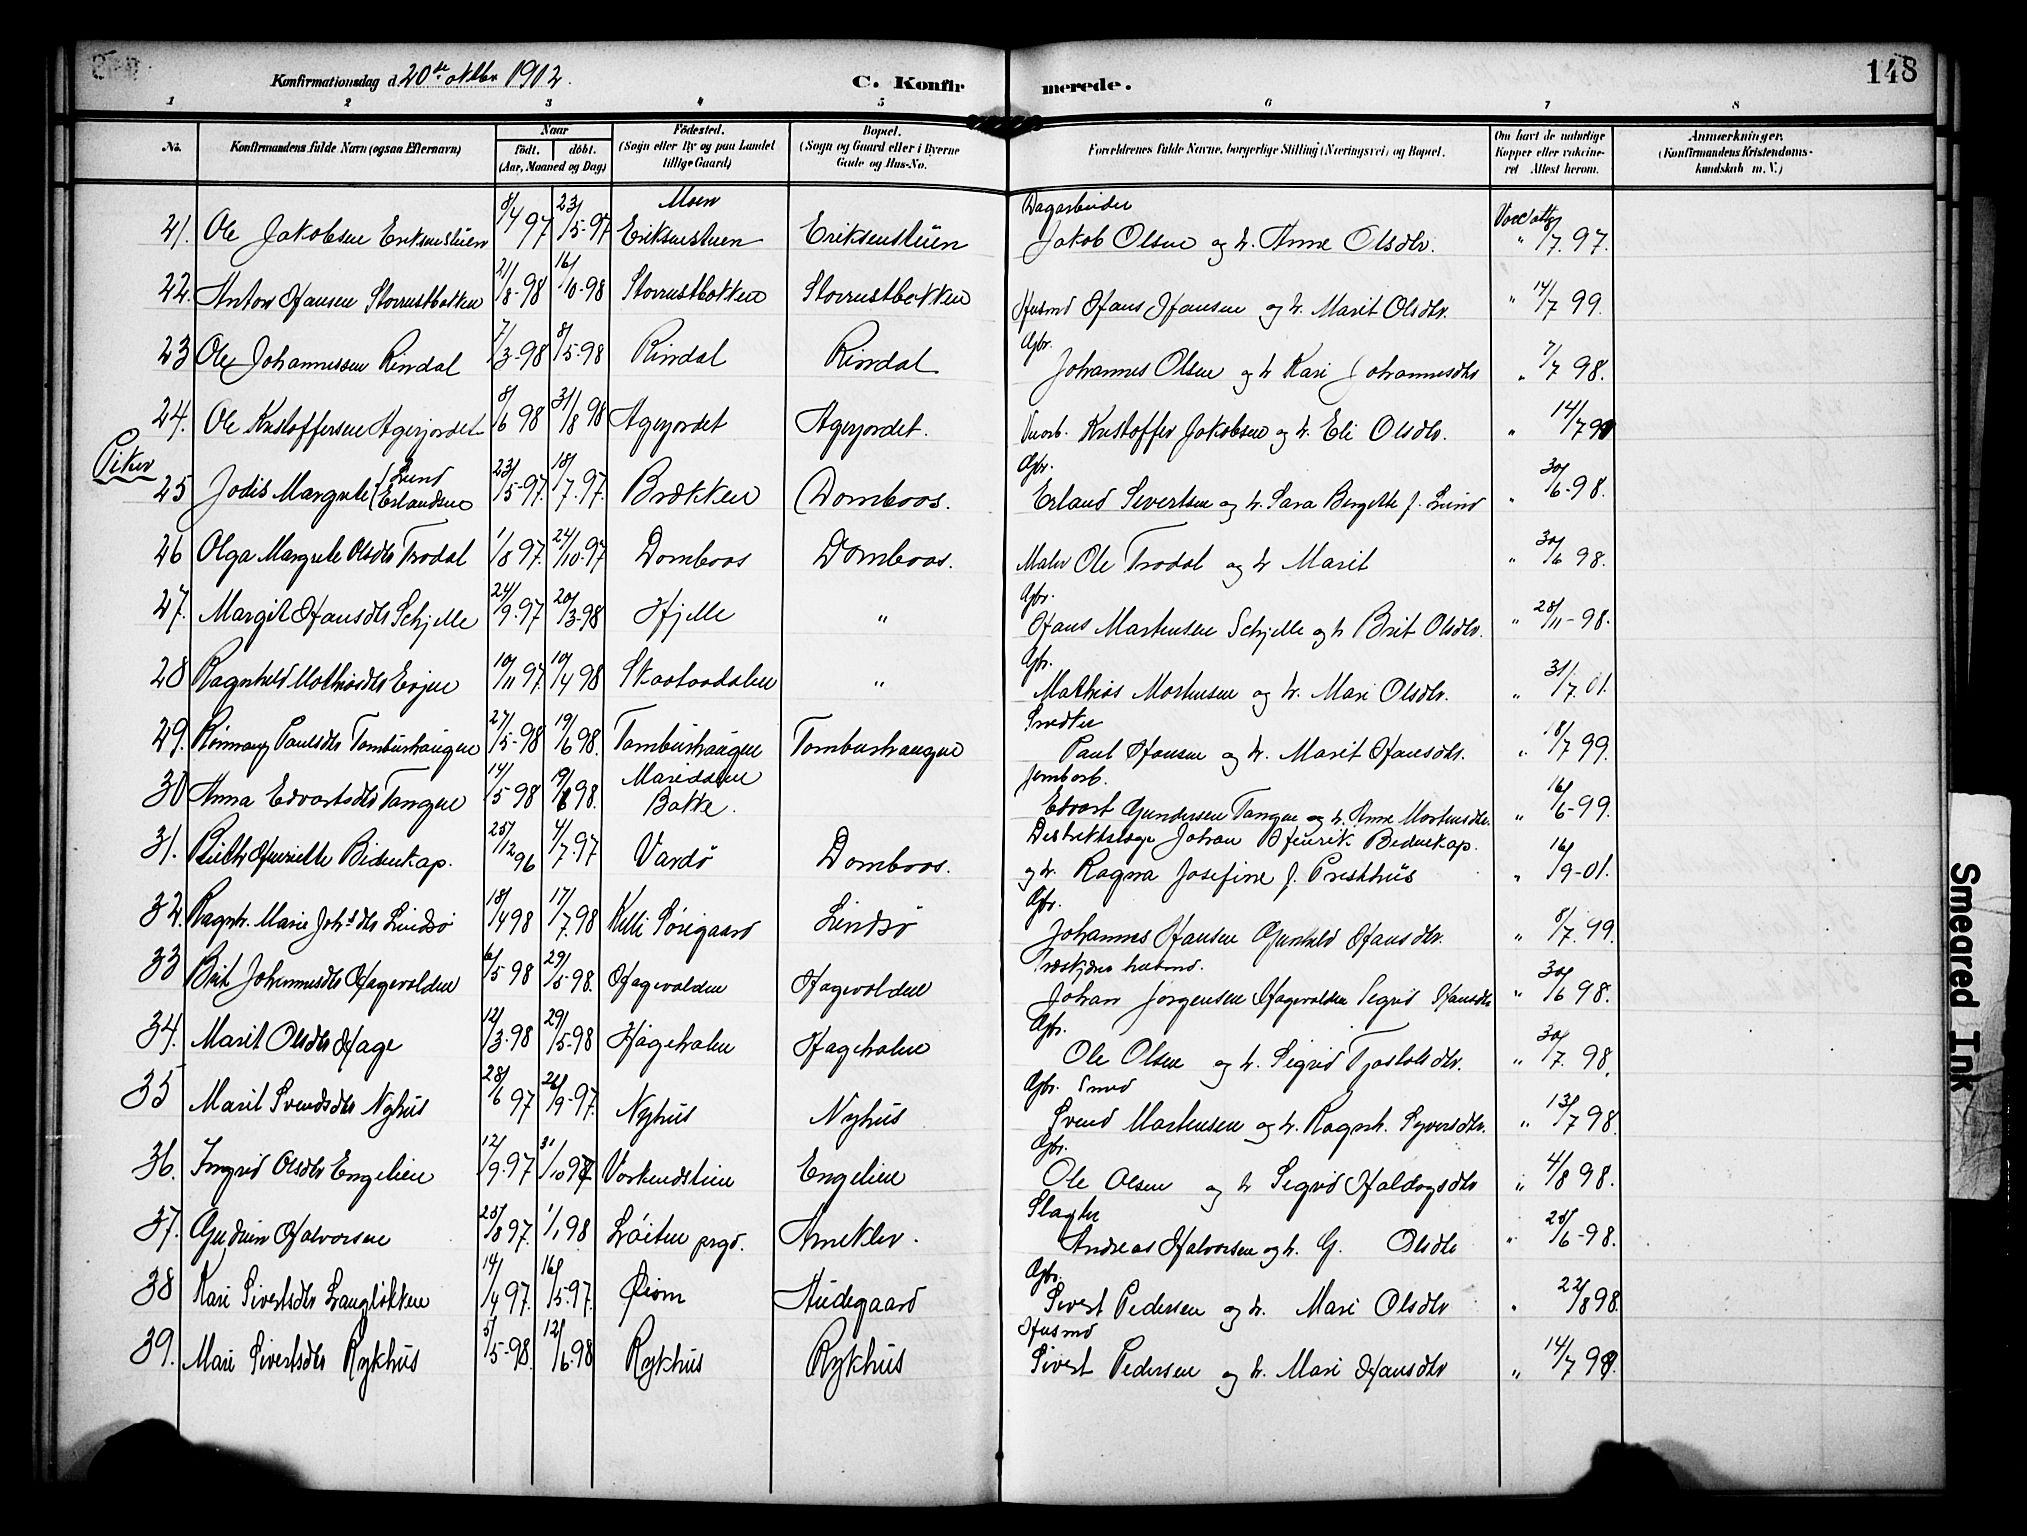 Konfirmationsdag d. 20de oktbr 1912.
C. Konfirmerede.
148
1 2 3 4 5 6 7 8
No. Konfirmandens fulde Navn (ogsaa Efternavn) Naar født. døbt. (Aar, Maaned og Dag) Fødested. (Sogn eller By og paa Landet tillige Gaard) Bopæl. (Sogn og Gaard eller i Byerne Gade og Hus-No. Forældrenes fulde Navne, borgerlige Stilling (Næringsvei) og Bopæl. Om havt de naturlige Kopper eller vakcineret Attest herom. Anmærkninger. (Konfirmandens Kristendomskundskab m. V.)
21. Ole Jakobsen Eriksenstuen 8/4 97 23/5-97 Moen Eriksenstuen Eriksenstuen Dagarbeider Jakob Olsen og h. Anne Olsdtr. " 8/7.97.
22. Anton Hansen Storrustbakken 21/8-98 16/10-98 Storrustbakken Storrustbakken Husmd Hans Hansen og h. Marit Olsdtr. " 14/7 99.
23 Ole Johannessen Rindal 7/3-98 8/5-98 Rindal Rindal Gbr. Johannes Olsen og h Kari Johannesdtr " 7/7 98.
24. Ole Kristoffersen Agerjordet 8/6 98 31/8 98 Agerjordet Agerjordet. Kristoffer Jakobsen og h. Eli Olsdtr. " 14/7 99
Piker
25 Jodis Margrete (Lund Erlandsen 23/5-97. 18/7.97. Brækken Domboos. Gbr. Erland Sivertsen og h. Sara Bergitte f. Lund " 30/6-98.
26 Olga Margrete Olsdtr Trodal 1/8 97. 24/10-97 Domboos Domboos. Maler Ole Trodal og h Marit " 30/6 98.
27. Margit Hansdtr Schjelle 24/9.97 20/3-98 Hjelle " Gbr. Hans Mortensen Schjelle og h Brit Olsdtr. " 28/11-98.
28 Ragnhild Mathiasdtr Evjen 10/11 97. 10/4 98 " Gbr. Mathias Mortensen og h. Mari Olsdtr. " 31/7.01.
29. Rønnaug Paulsdtr Tambushaugen 27/5-98 19/6 98. Tambushaugen Tambushaugen Snedker Paul Hansen og h. Marit Hansdtr. " 18/7 99.
30 Anna Edvartsdtr Tangen 14/5-98 19/6 98. Bakke. Jernbarb. Edvart Gundersen Tangen og h. Anne Mortensdtr. " 16/6-99.
31. Ruth Henriette Bidenkap. 25/12 96 4/7.97 Vardø Domboos. Distriktslæge Johan Henrik Bidenkap. og h. Ragna Josefine f. Presthus " 16/9-01.
32. Ragnh. Marie Johsdtr Lindsø 18/4 98 17/7.98 Kelli Sørigaard Lindsø Gbr. Johannes Hansen Gunhild Hansdtr. " 8/7.99.
33 Brit Johannesdtr Hagevolden 6/5-98 29/5-98. Hagevolden Hagevolden Træskjærer husmd. Johan Jørgensen Hagevolden Sigrid Hansdtr " 30/6 98.
34. Marit Olsdtr Hage 12/3-98 29/5-98 Hageholen Hageholen Gbr. Ole Olsen og h. Sigrid Tjostolsdtr. " 30/7. 98.
35 Marit Svendsdtr Nyhus 28/6 97 26/9-97. Nyhus Nyhus Gbr. Smed Svend Mortensen og h. Ragnh. Syversdtr. " 13/7 98.
36. Ingrid Olsdtr Engelien 12/9.97 31/10 97 Engelien Gbr. Ole Olsen og h Sigrid Haldogsdtr " 4/8 98.
37. Gudrun Halvorsen 25/8 97. 1/1 98 Løiten prgd. Arneklev. Slagter Andreas Halvorsen og h. G. Olsdtr " 28/6-98.
38 Kari Sivertsdtr Langløkken 14/4 97. 16/5-97. Qvam Audegaard Gbr. Sivert Pedersen og h. Mari Olsdtr " 22/8 98.
39. Mari Sivertsdtr Rykhus 5/5-98. 12/6-98 Rykhus Rykhus Husmd Sivert Pedersen og h. Mari Hansdtr " 14/7 99.
Smeared Ink